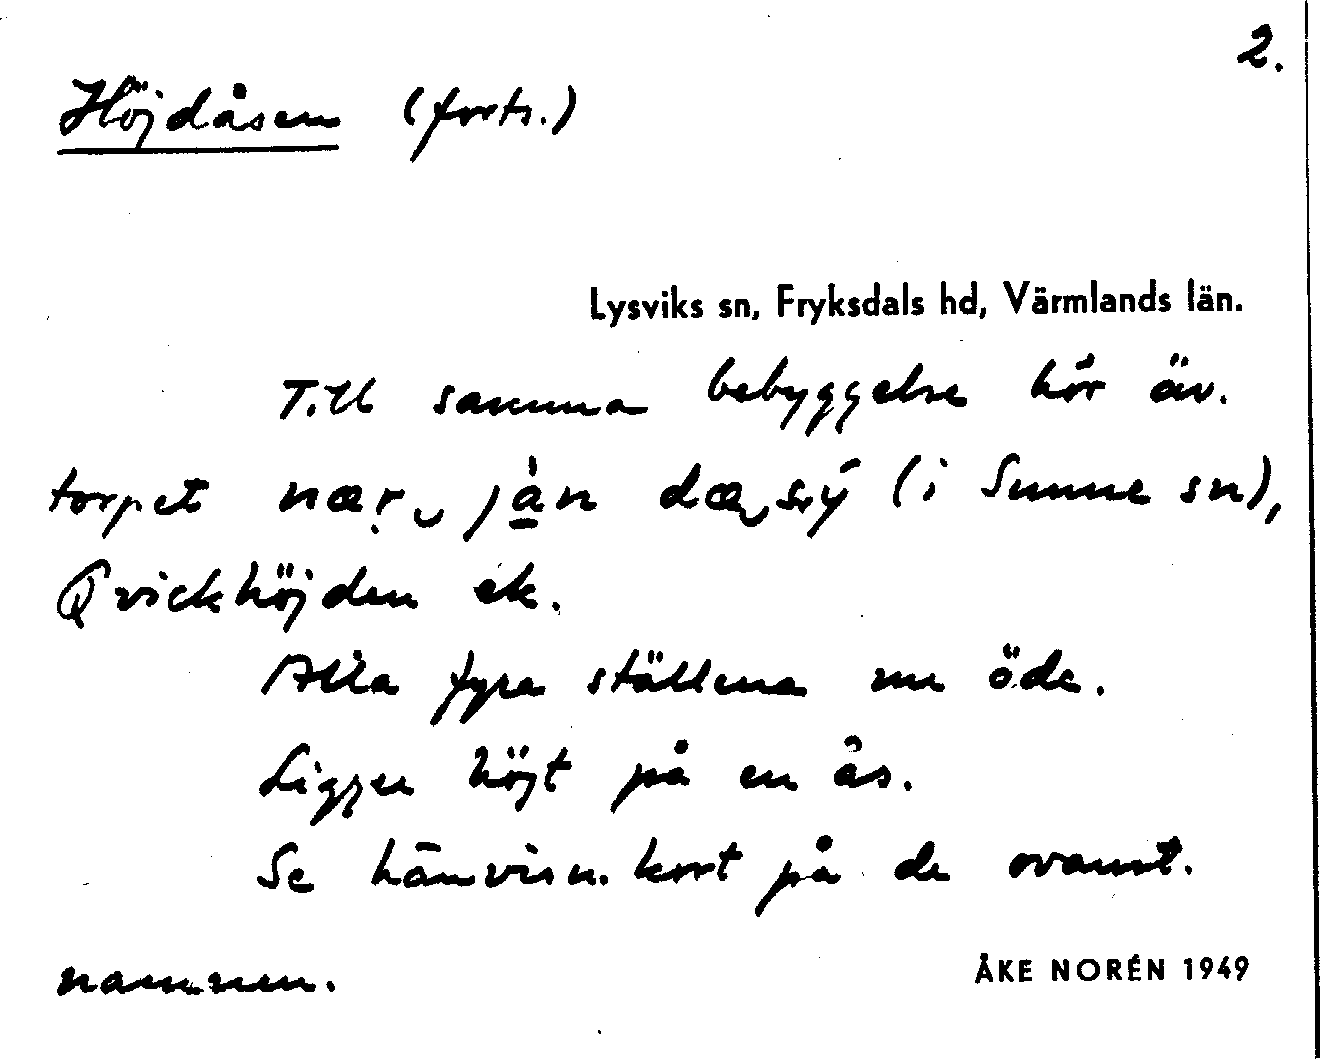 2.
Höjdåsen (forts.)
Lysviks sn, Fryksdals hd, Värmlands län.
Till samma bebyggelse hör äv.
torpet (i Sunne sn),
Qvickhöjden ek.
Alla fyra ställena nu öde.
Ligger högt på en ås.
Se hänvisn. kort på de ovannt.
namnen.
ÅKE NORÉN 1949